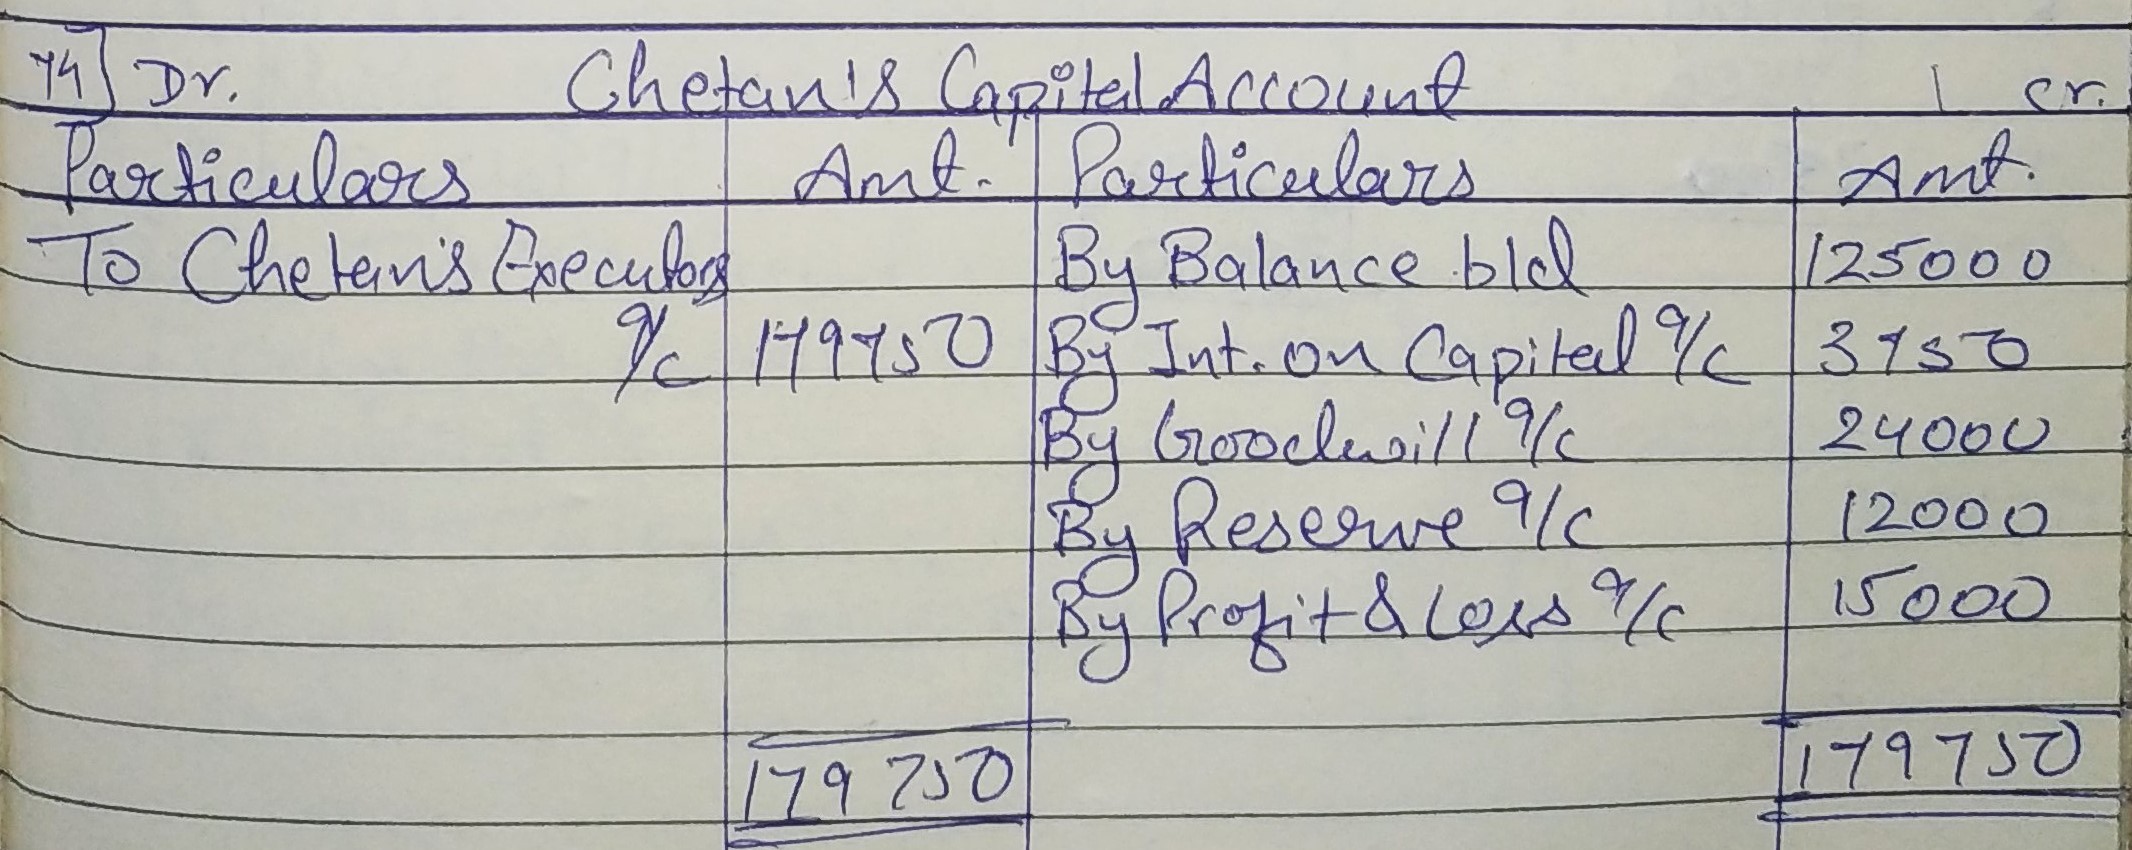 74] Dr. Chetan's Capital Account cr.
Particulars Amt. Particulars Amt.
To Chetan's Executors By Balance b/d 125000
a/c 179750 By Int. on Capital a/c 3750
By Goodwill a/c 24000
By Reserve a/c 12000
By Profit & Loss a/c 15000
179750 179750